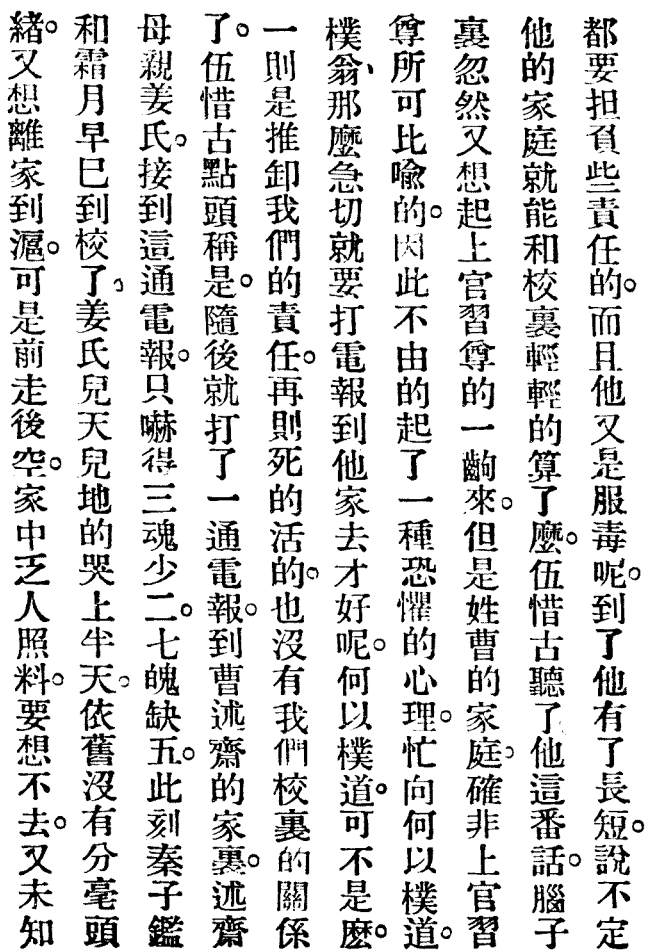 都要担負些責任的。而且他又是服毒呢。到了他有了長短。說不定
他的家庭就能和校裏輕輕的算了麽。伍惜古聽了他這番話。腦子
裏忽然又想起上官習尊的一齣來。但是姓曹的家庭。確非上官習
尊所可比喻的。因此不由的起了一種恐懼的心理。忙向何以樸道。
樸翁、那麽急切就要打電報到他家去才好呢。何以樸道。可不是麽。
一則是推卸我們的責任。再則死的活的。也沒有我們校裏的關係
了。伍惜古點頭稱是。隨後就打了一通電報。到曹述齋的家裏。述齋
母親姜氏。接到這通電報。只嚇得三魂少二。七魄缺五。此刻秦子鑑
和霜月早已到校了。姜氏兒天兒地的哭上半天。依舊沒有分毫頭
緒。又想離家到滬。可是前走後空。家中乏人照料。要想不去。又未知